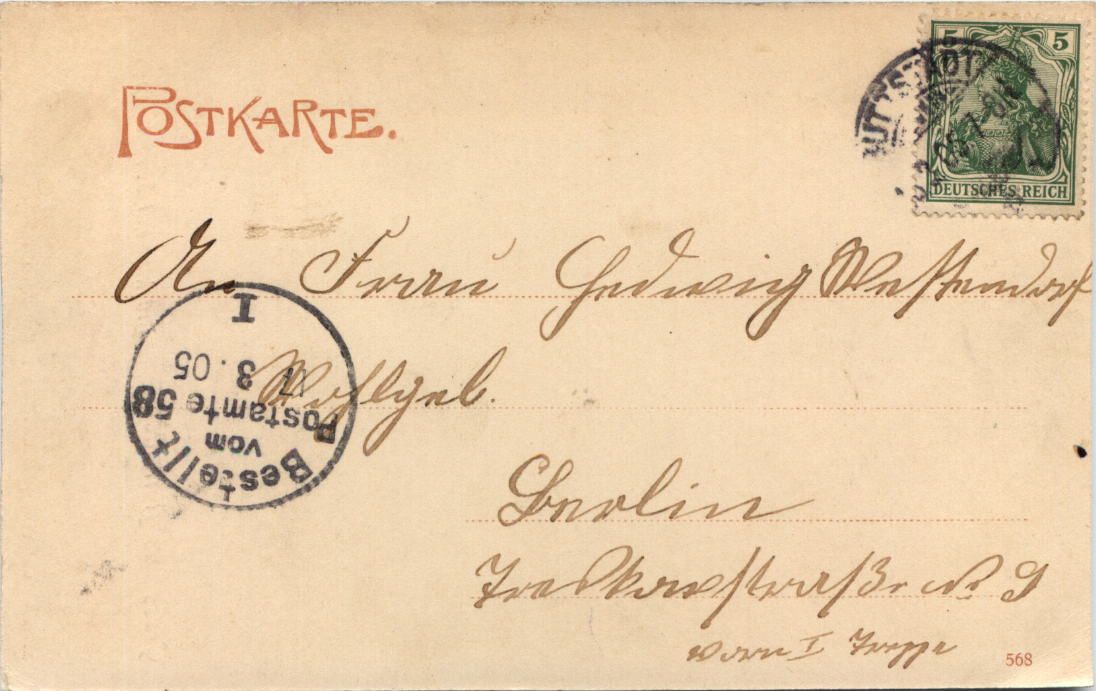 POSTKARTE.
5 5
DEUTSCHES REICH
An Frau Hedwig Westendorf
Wohlgeb.
Berlin
Treskowstraße No 9
vorn I Treppe
568
Bestellt
vom
Postamte 58
3. 05
I